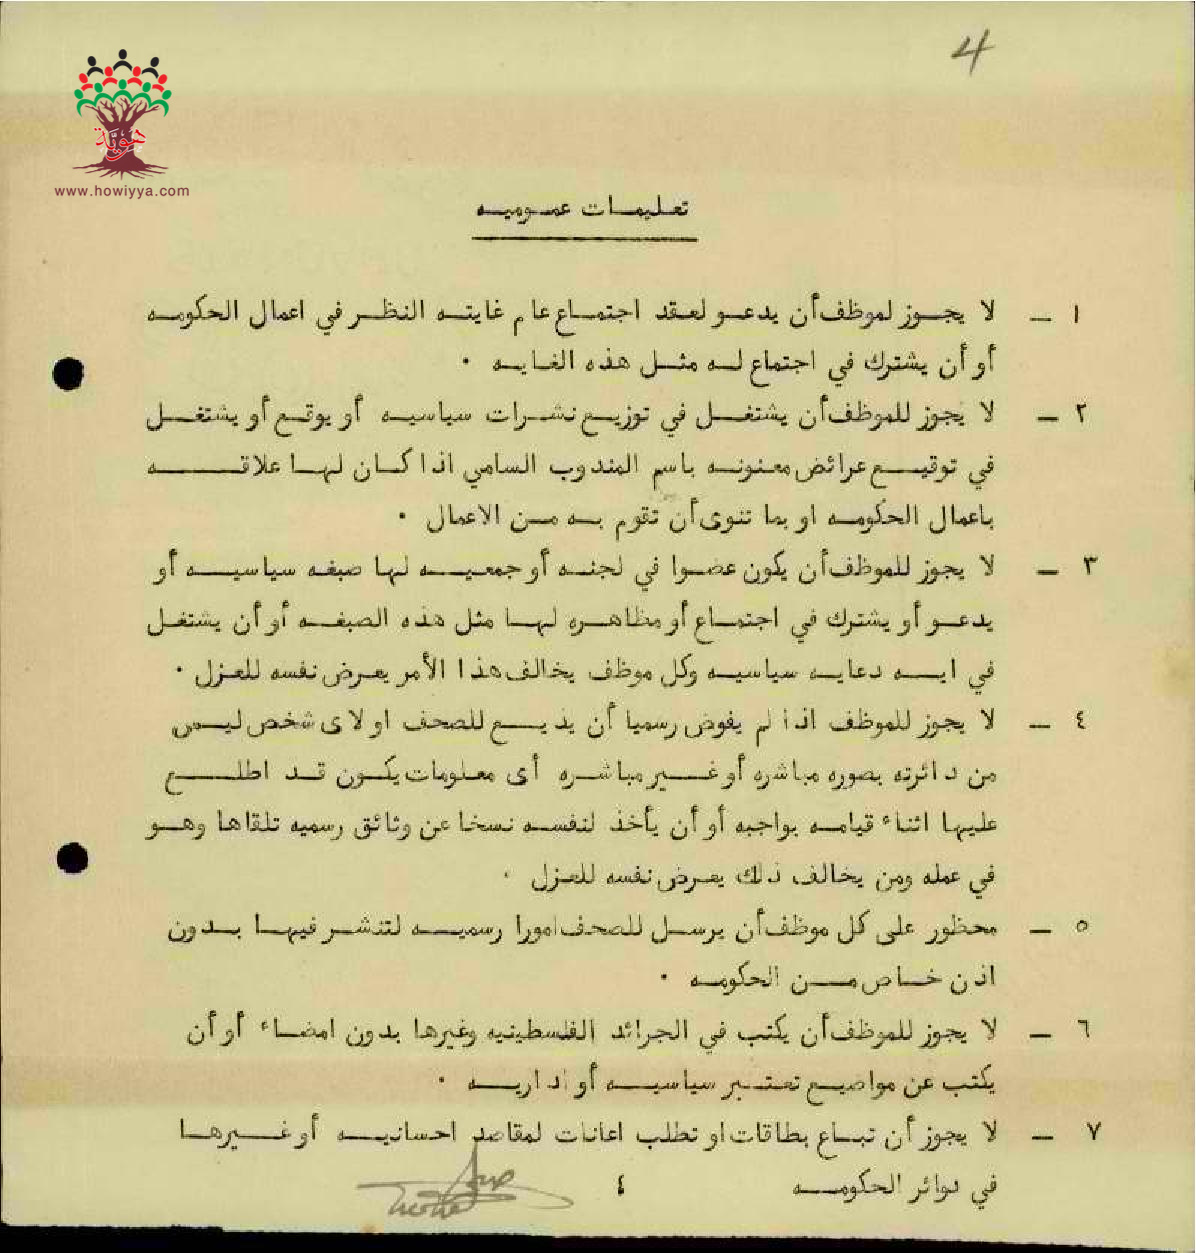 4
هوية
www.howiyya.com
تعليمات عموميه
١ - لا يجوز لموظف أن يدعو لعقد اجتماع عام غايته النظر في اعمال الحكومه
أو أن يشترك في اجتماع له مثل هذه الغايه ٠
٢ - لا يجوز للموظف أن يشتغل في توزيع نشرات سياسيه أو يوقع أو يشتغل
في توقيع عرائض معنونه باسم المندوب السامي اذا كان لها علاقه
باعمال الحكومه او بما تنوى أن تقوم به من الاعمال ٠
٣ - لا يجوز للموظف أن يكون عضوا في لجنه أو جمعيه لها صبغه سياسيه أو
يدعو أو يشترك في اجتماع أو مظاهره لها مثل هذه الصبغه أو أن يشتغل
في ايه دعايه سياسيه وكل موظف يخالف هذا الأمر يعرض نفسه للعزل ٠
٤ - لا يجوز للموظف اذا لم يفوض رسميا أن يذيع للصحف او لاى شخص ليس
من دائرته بصوره مباشره أو غير مباشره أى معلومات يكون قد اطلع
عليها اثناء قيامه بواجبه أو أن يأخذ لنفسه نسخا عن وثائق رسميه تلقاها وهو
في عمله ومن يخالف ذلك يعرض نفسه للعزل ٠
٥ - محظور على كل موظف أن يرسل للصحف امورا رسميه لتنشر فيها بدون
اذن خاص من الحكومه ٠
٦ - لا يجوز للموظف أن يكتب في الجرائد الفلسطينيه وغيرها بدون امضاء أو أن
يكتب عن مواضيع تعتبر سياسيه أو اداريه ٠
٧ - لا يجوز أن تباع بطاقات او تطلب اعانات لمقاصد احسانيه أو غيرها
في دوائر الحكومه ٤